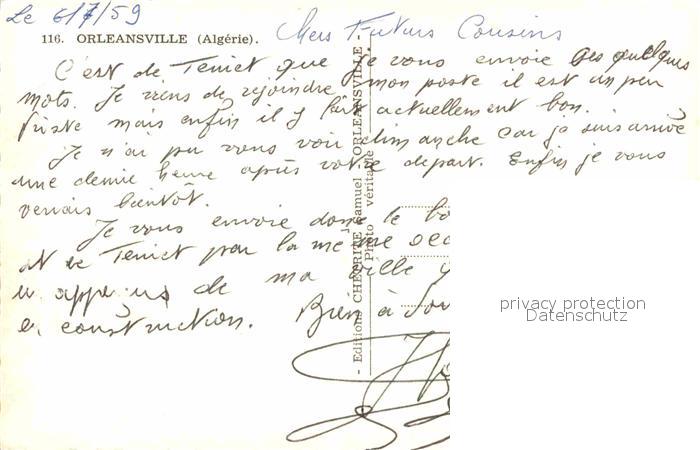 Le 6/7/59
116. ORLEANSVILLE (Algérie).
Mes Futurs Cousins
C'est de Teniet que je vous envoie ces quelques
mots. Je viens de rejoindre mon poste il est un peu
triste mais enfin il y fait actuellement bon.
Je n'ai pu vous voir dimanche car je suis arrivé
une demie heure après votre depart. Enfin je vous
verrais bientôt.
Je vous envoie donc le bo
de Teniet par la même occ
de ma ville
en construction. Bien à vou
- Editions CHEVRITE Samuel - ORLEANSVILLE -
Photo véritable
privacy protection
Datenschutz